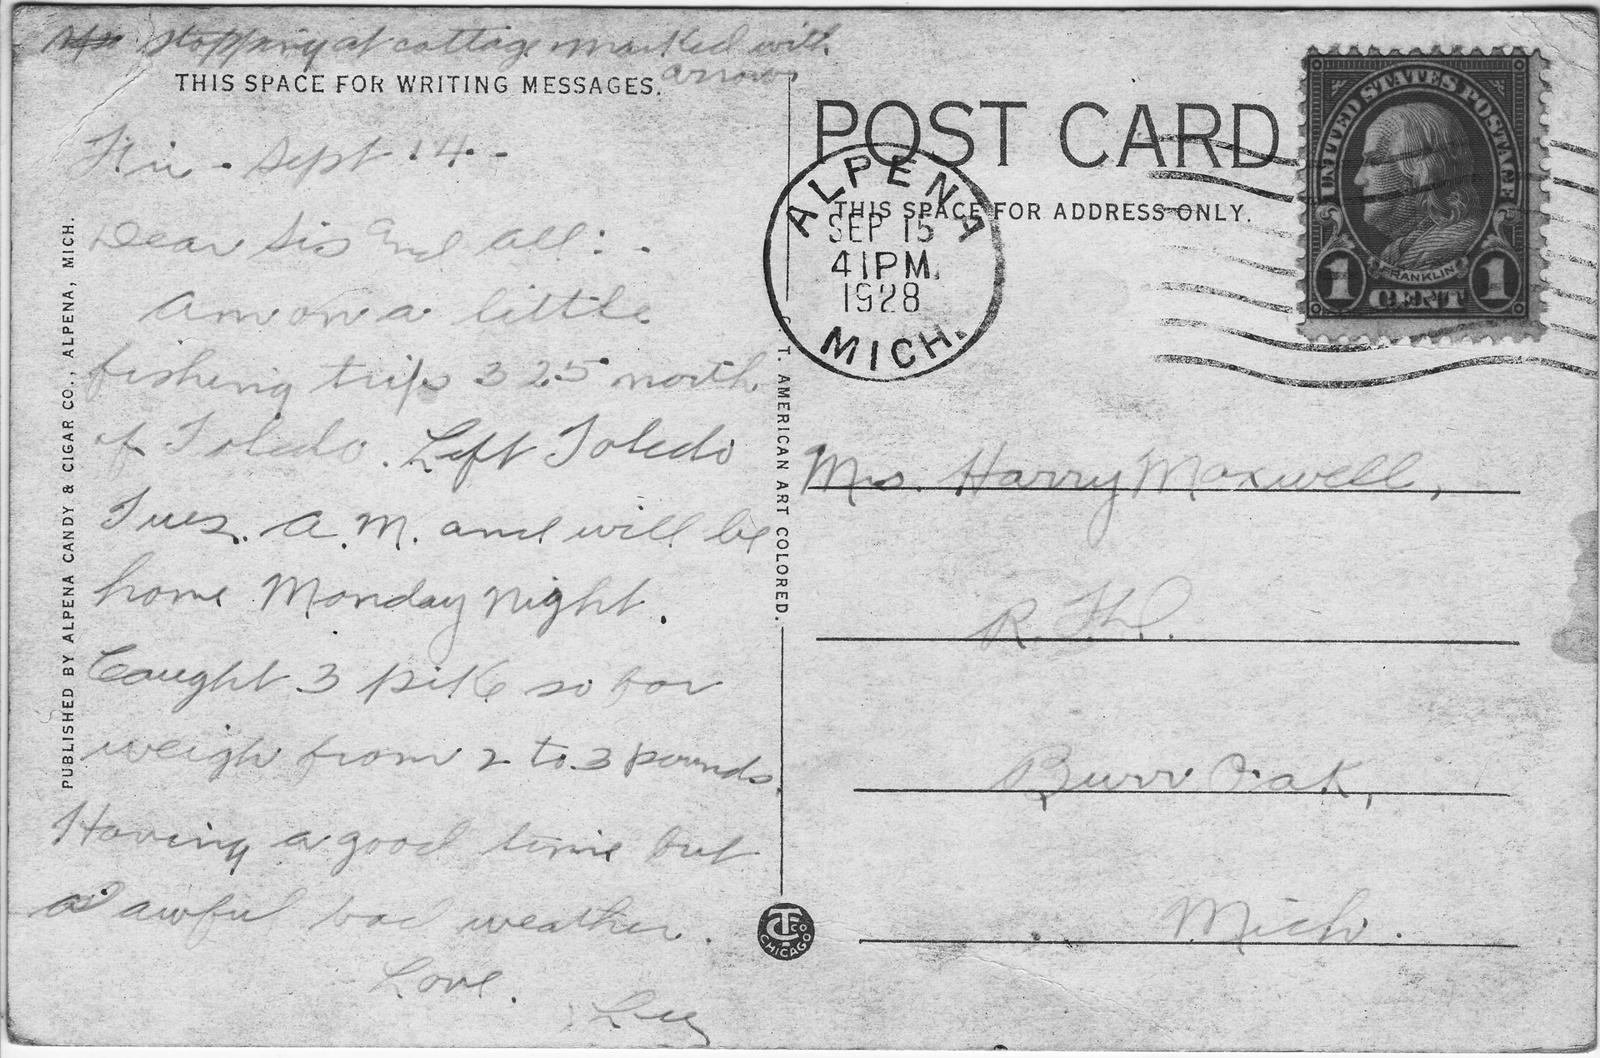 stopping at cottage marked with
arrow
THIS SPACE FOR WRITING MESSAGES.
Fri - Sept 14 -
Dear Sis and all:-
Am on a little
fishing trip 325 north
of Toledo. Left Toledo
Tues. A.M. and will be
home Monday Night.
Caught 3 pike so far
weigh from 2 to 3 pounds
Having a good time but
awful bad weather.
Love.
Lee
PUBLISHED BY ALPENA CANDY & CIGAR CO., ALPENA, MICH.
C. T. AMERICAN ART COLORED.
CT CO
CHICAGO
POST CARD
THIS SPACE FOR ADDRESS ONLY.
ALPENA
SEP 15
41PM.
1928
MICH.
UNITED STATES POSTAGE
FRANKLIN
1 CENT 1
Mrs. Harry Maxwell,
Burr Oak,
Mich.